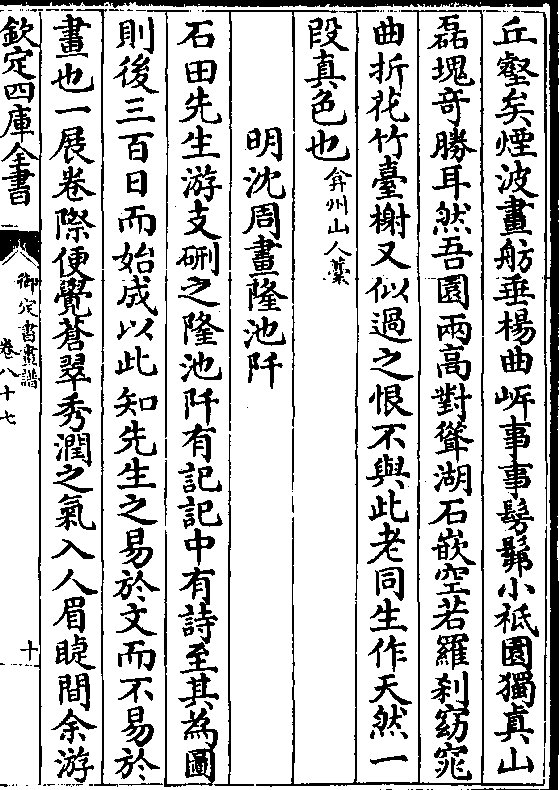 丘壑矣煙波畫舫垂楊曲㟁事事髣髴小祗園獨真山
磊塊奇勝耳然吾園兩高對聳湖石嵌空若羅刹窈窕
曲折花竹臺榭又似過之恨不與此老同生作天然一
段真色也弇州山人藁
明沈周畫隆池阡
石田先生游支硎之隆池阡有記記中有詩至其為圖
則後三百日而始成以此知先生之易於文而不易於
畫也一展卷際便覺蒼翠秀潤之氣入人眉睫間余游
欽定四庫全書
御定書畫譜
卷八十七
十